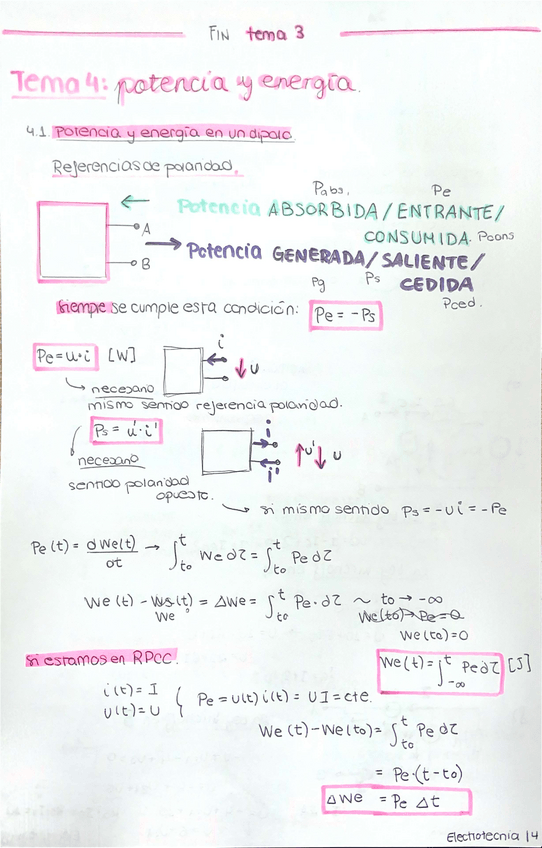 FIN tema 3
Tema 4: potencia y energía.
4.1. Potencia y energía en un dipolo.
Referencias de polaridad.
Pabs. Pe
Potencia ABSORBIDA / ENTRANTE /
A
CONSUMIDA. Pcons
Potencia GENERADA / SALIENTE /
B
Pg Ps CEDIDA
Pced.
siempre se cumple esta condición: Pe = -Ps
Pe = u·i [W] i u
necesario
mismo sentido referencia polaridad.
Ps = u'·i' i u' u
necesario i'
sentido polaridad
opuesto.
si mismo sentido Ps = -ui = -Pe
Pe(t) = dWe(t)/dt → ∫_{to}^{t} We dτ = ∫_{to}^{t} Pe dτ
We(t) - Ws(t) = ΔWe = ∫_{to}^{t} Pe·dτ ~ to → -∞
We We(to)→Pe=0
We(to)=0
si estamos en RPCC. We(t) = ∫_{-∞}^{t} Pe dτ [J]
i(t) = I
u(t) = U { Pe = u(t) i(t) = UI = cte.
We(t) - We(to) = ∫_{to}^{t} Pe dτ
= Pe·(t-to)
ΔWe = Pe Δt
Electrotecnia | 4